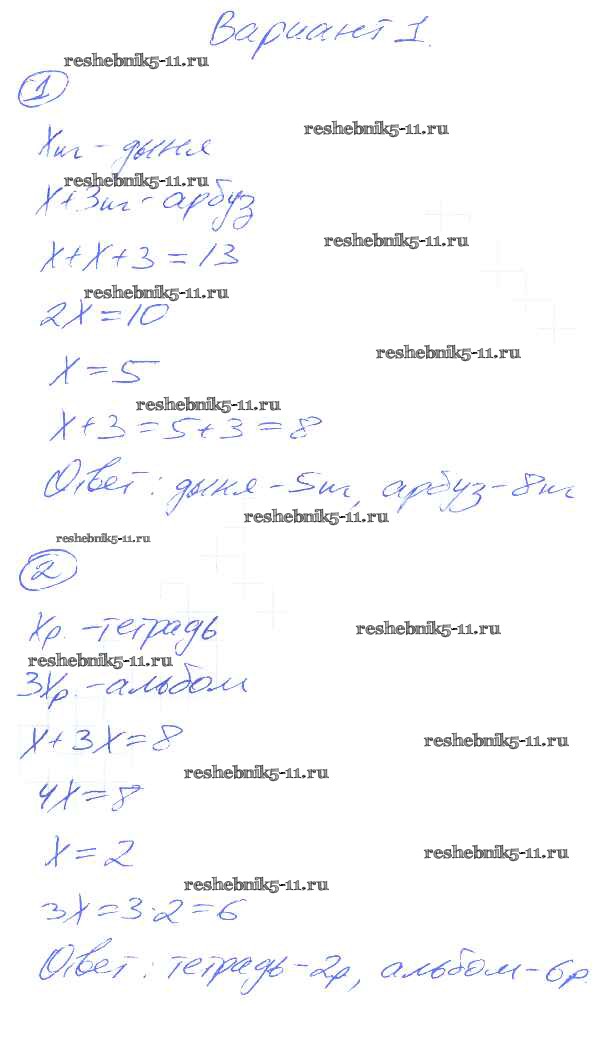 Вариант 1.
reshebnik5-11.ru
1
reshebnik5-11.ru
Xкг - дыня
reshebnik5-11.ru
X+3кг - арбуз
reshebnik5-11.ru
X+X+3=13
reshebnik5-11.ru
2X=10
reshebnik5-11.ru
X=5
reshebnik5-11.ru
X+3=5+3=8
Ответ: дыня-5кг, арбуз-8кг
reshebnik5-11.ru
reshebnik5-11.ru
2
Xр. -тетрадь
reshebnik5-11.ru
reshebnik5-11.ru
3Xр.-альбом
X+3X=8
reshebnik5-11.ru
reshebnik5-11.ru
4X=8
X=2
reshebnik5-11.ru
reshebnik5-11.ru
3X=3·2=6
Ответ: тетрадь-2р, альбом-6р.